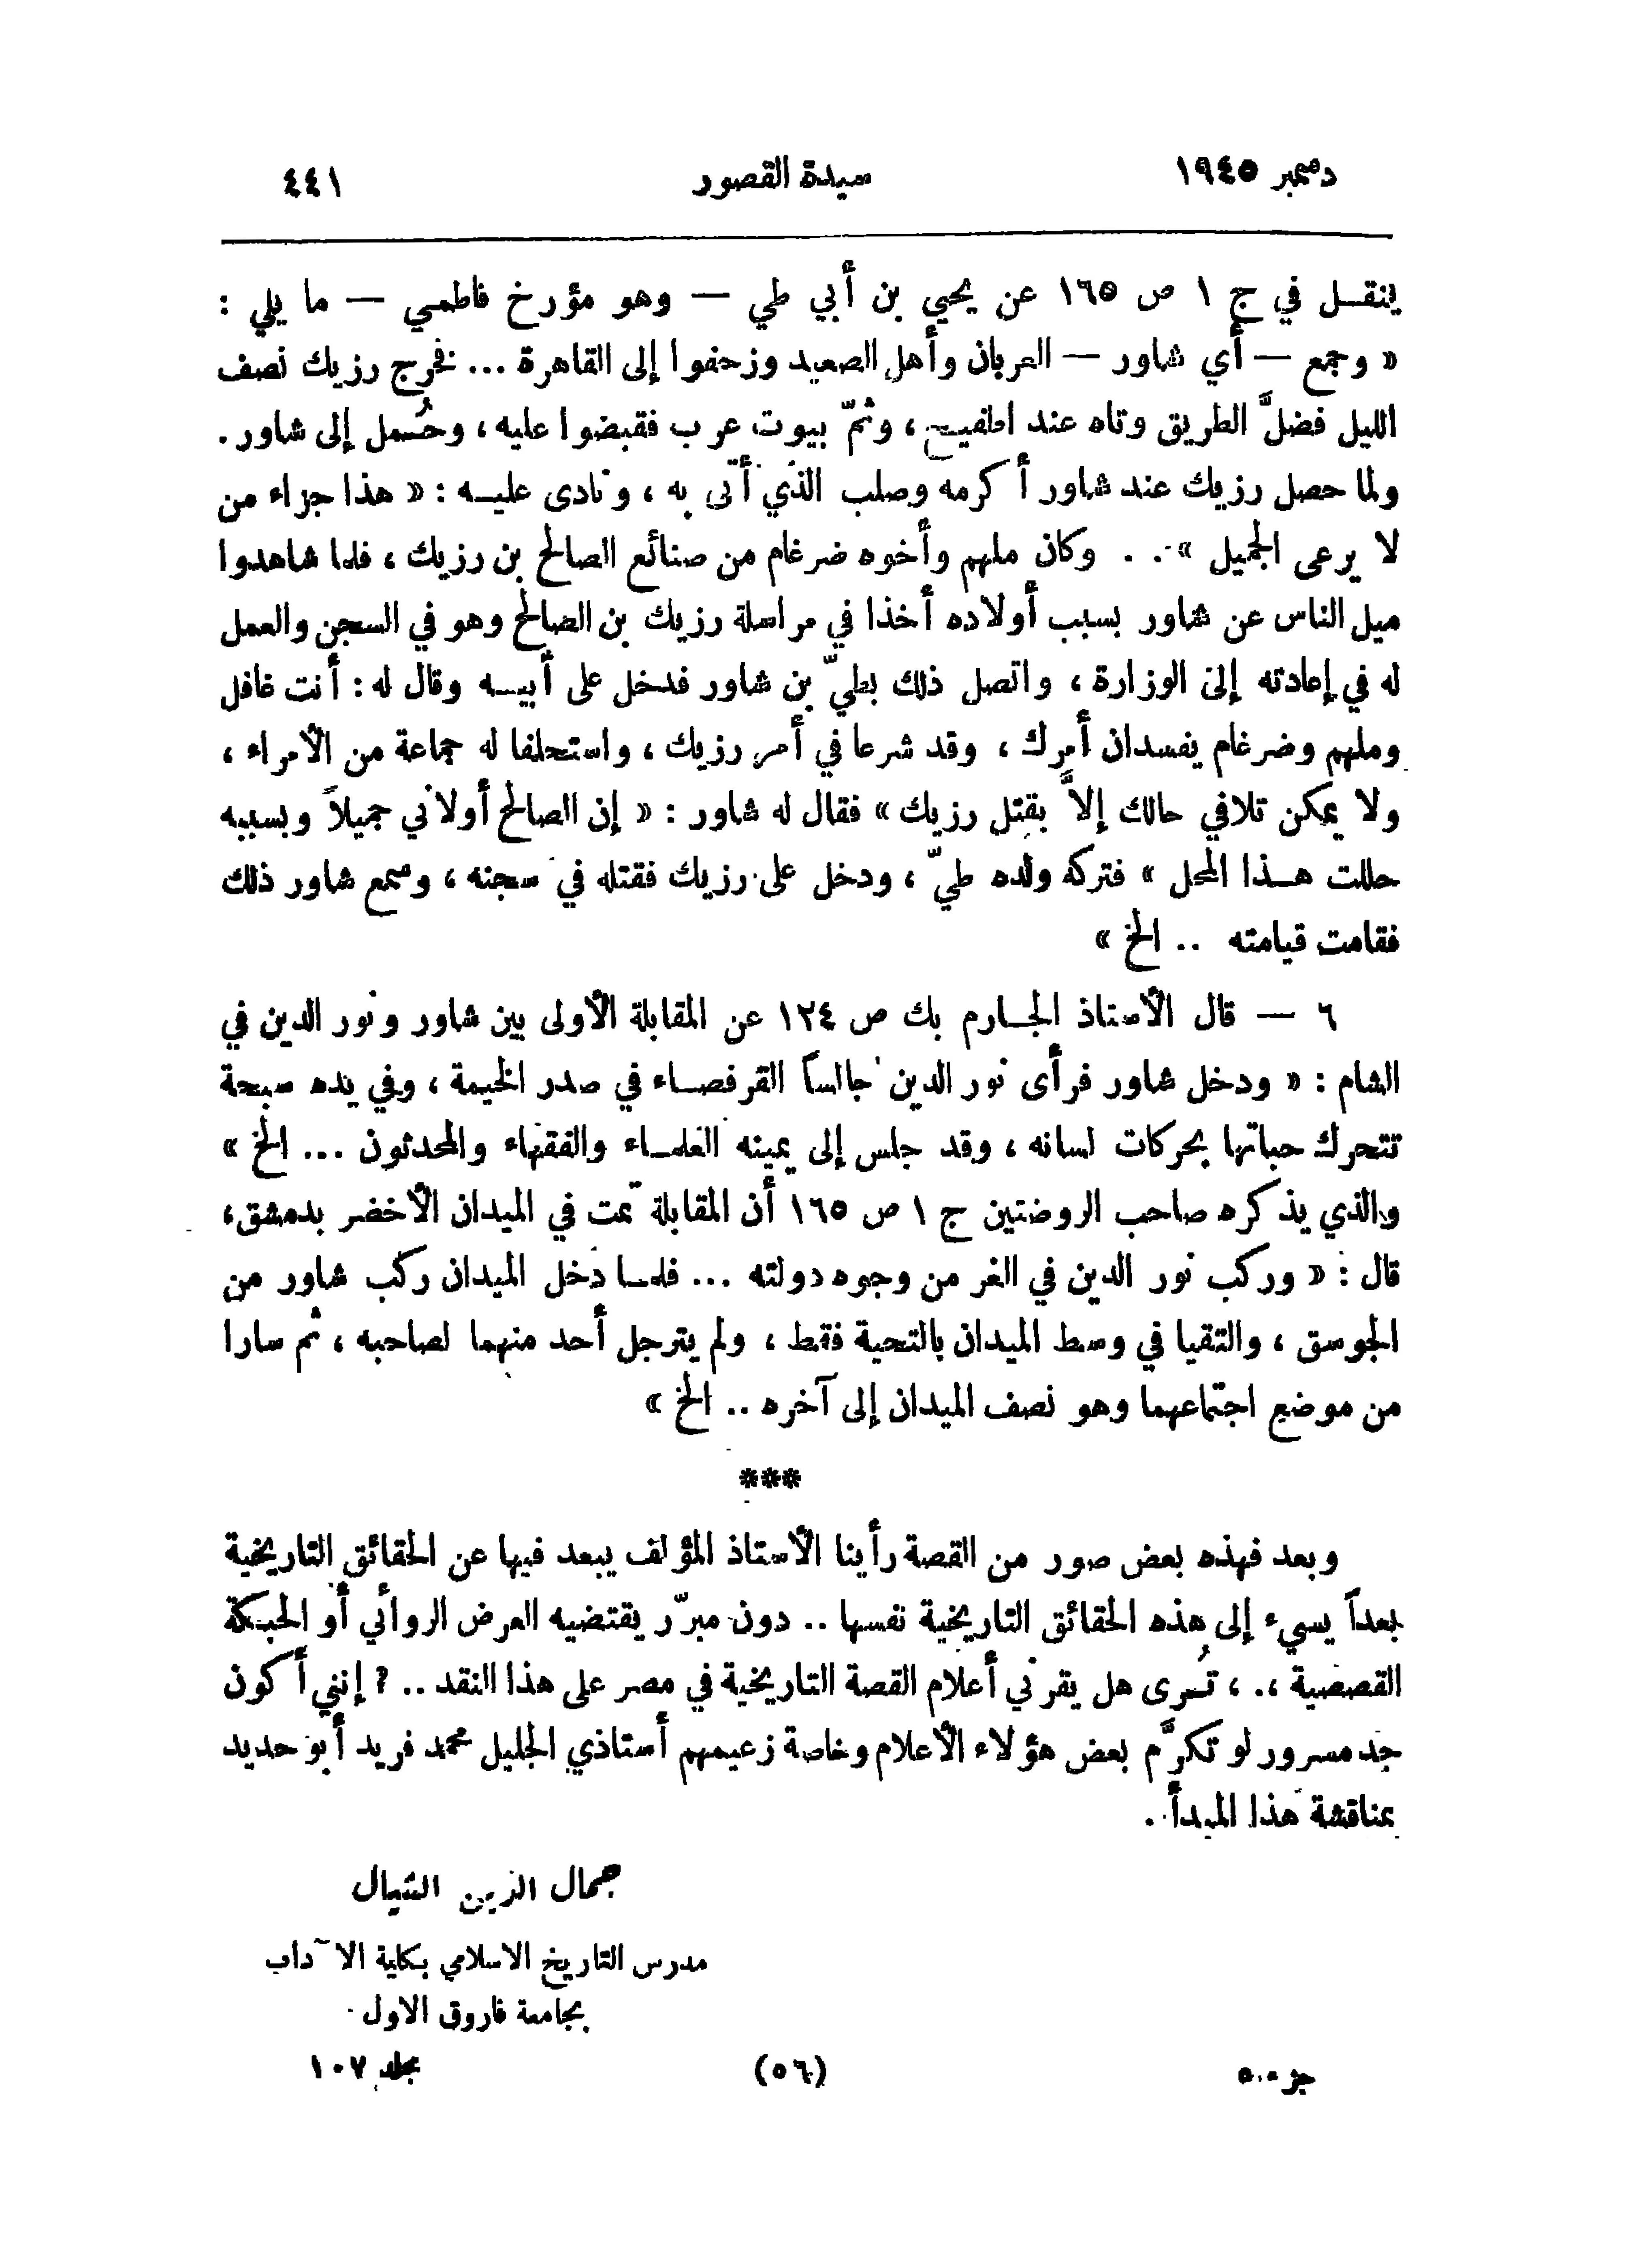 دسمبر ١٩٤٥ سيدة القصور ٤٤١
ينقل في ج ١ ص ١٦٥ عن يحيي بن أبي طي — وهو مؤرخ فاطمي — ما يلي :
« وجمع — أي شاور — العربان وأهل الصعيد وزحفوا إلى القاهرة ... نخرج رزيك نصف
الليل فضلَّ الطريق وتاه عند اطفيح ، وثمّ بيوت عرب فقبضوا عليه ، وحُمل إلى شاور .
ولما حصل رزيك عند شاور أكرمه وصلب الذي أتى به ، ونادى عليه : « هذا جزاء من
لا يرعى الجميل » . . وكان ملهم وأخوه ضرغام من صنائع الصالح بن رزيك ، فلما شاهدوا
ميل الناس عن شاور بسبب أولاده أخذا في مراسلة رزيك بن الصالح وهو في السجن والعمل
له في إعادته إلى الوزارة ، واتصل ذلك بطيّ بن شاور فدخل على أبيه وقال له : أنت غافل
وملهم وضرغام يفسدان أمرك ، وقد شرعا في أمر رزيك ، واستحلفا له جماعة من الأمراء ،
ولا يمكن تلافي حالك إلاَّ بقتل رزيك » فقال له شاور : « إن الصالح أولاني جميلاً وبسببه
حللت هذا المحل » فتركه ولده طيّ ، ودخل على رزيك فقتله في سجنه ، وسمع شاور ذلك
فقامت قيامته .. الخ »
٦ — قال الأستاذ الجارم بك ص ١٢٤ عن المقابلة الأولى بين شاور ونور الدين في
الشام : « ودخل شاور فرأى نور الدين جالساً القرفصاء في صدر الخيمة ، وفي يده سبحة
تتحرك حباتها بحركات لسانه ، وقد جلس إلى يمينه العلماء والفقهاء والمحدثون ... الخ »
والذي يذكره صاحب الروضتين ج ١ ص ١٦٥ أن المقابلة تمت في الميدان الأخضر بدمشق ،
قال : « وركب نور الدين في الغر من وجوه دولته ... فلما دخل الميدان ركب شاور من
الجوسق ، والتقيا في وسط الميدان بالتحية فقط ، ولم يترجل أحد منهما لصاحبه ، ثم سارا
من موضع اجتماعهما وهو نصف الميدان إلى آخره .. الخ »
***
وبعد فهذه بعض صور من القصة رأينا الأستاذ المؤلف يبعد فيها عن الحقائق التاريخية
بعداً يسيء إلى هذه الحقائق التاريخية نفسها .. دون مبرّر يقتضيه العرض الروائي أو الحبكة
القصصية .. ، تُرى هل يقرني أعلام القصة التاريخية في مصر على هذا النقد .. ? إنني أكون
جد مسرور لو تكرَّم بعض هؤلاء الأعلام وخاصة زعيمهم أستاذي الجليل محمد فريد أبو حديد
بمناقشة هذا المبدأ .
جمال الدين الشيال
مدرس التاريخ الاسلامي بكلية الآداب
بجامعة فاروق الاول
جزء ٥ (٥٦) مجلد ١٠٧